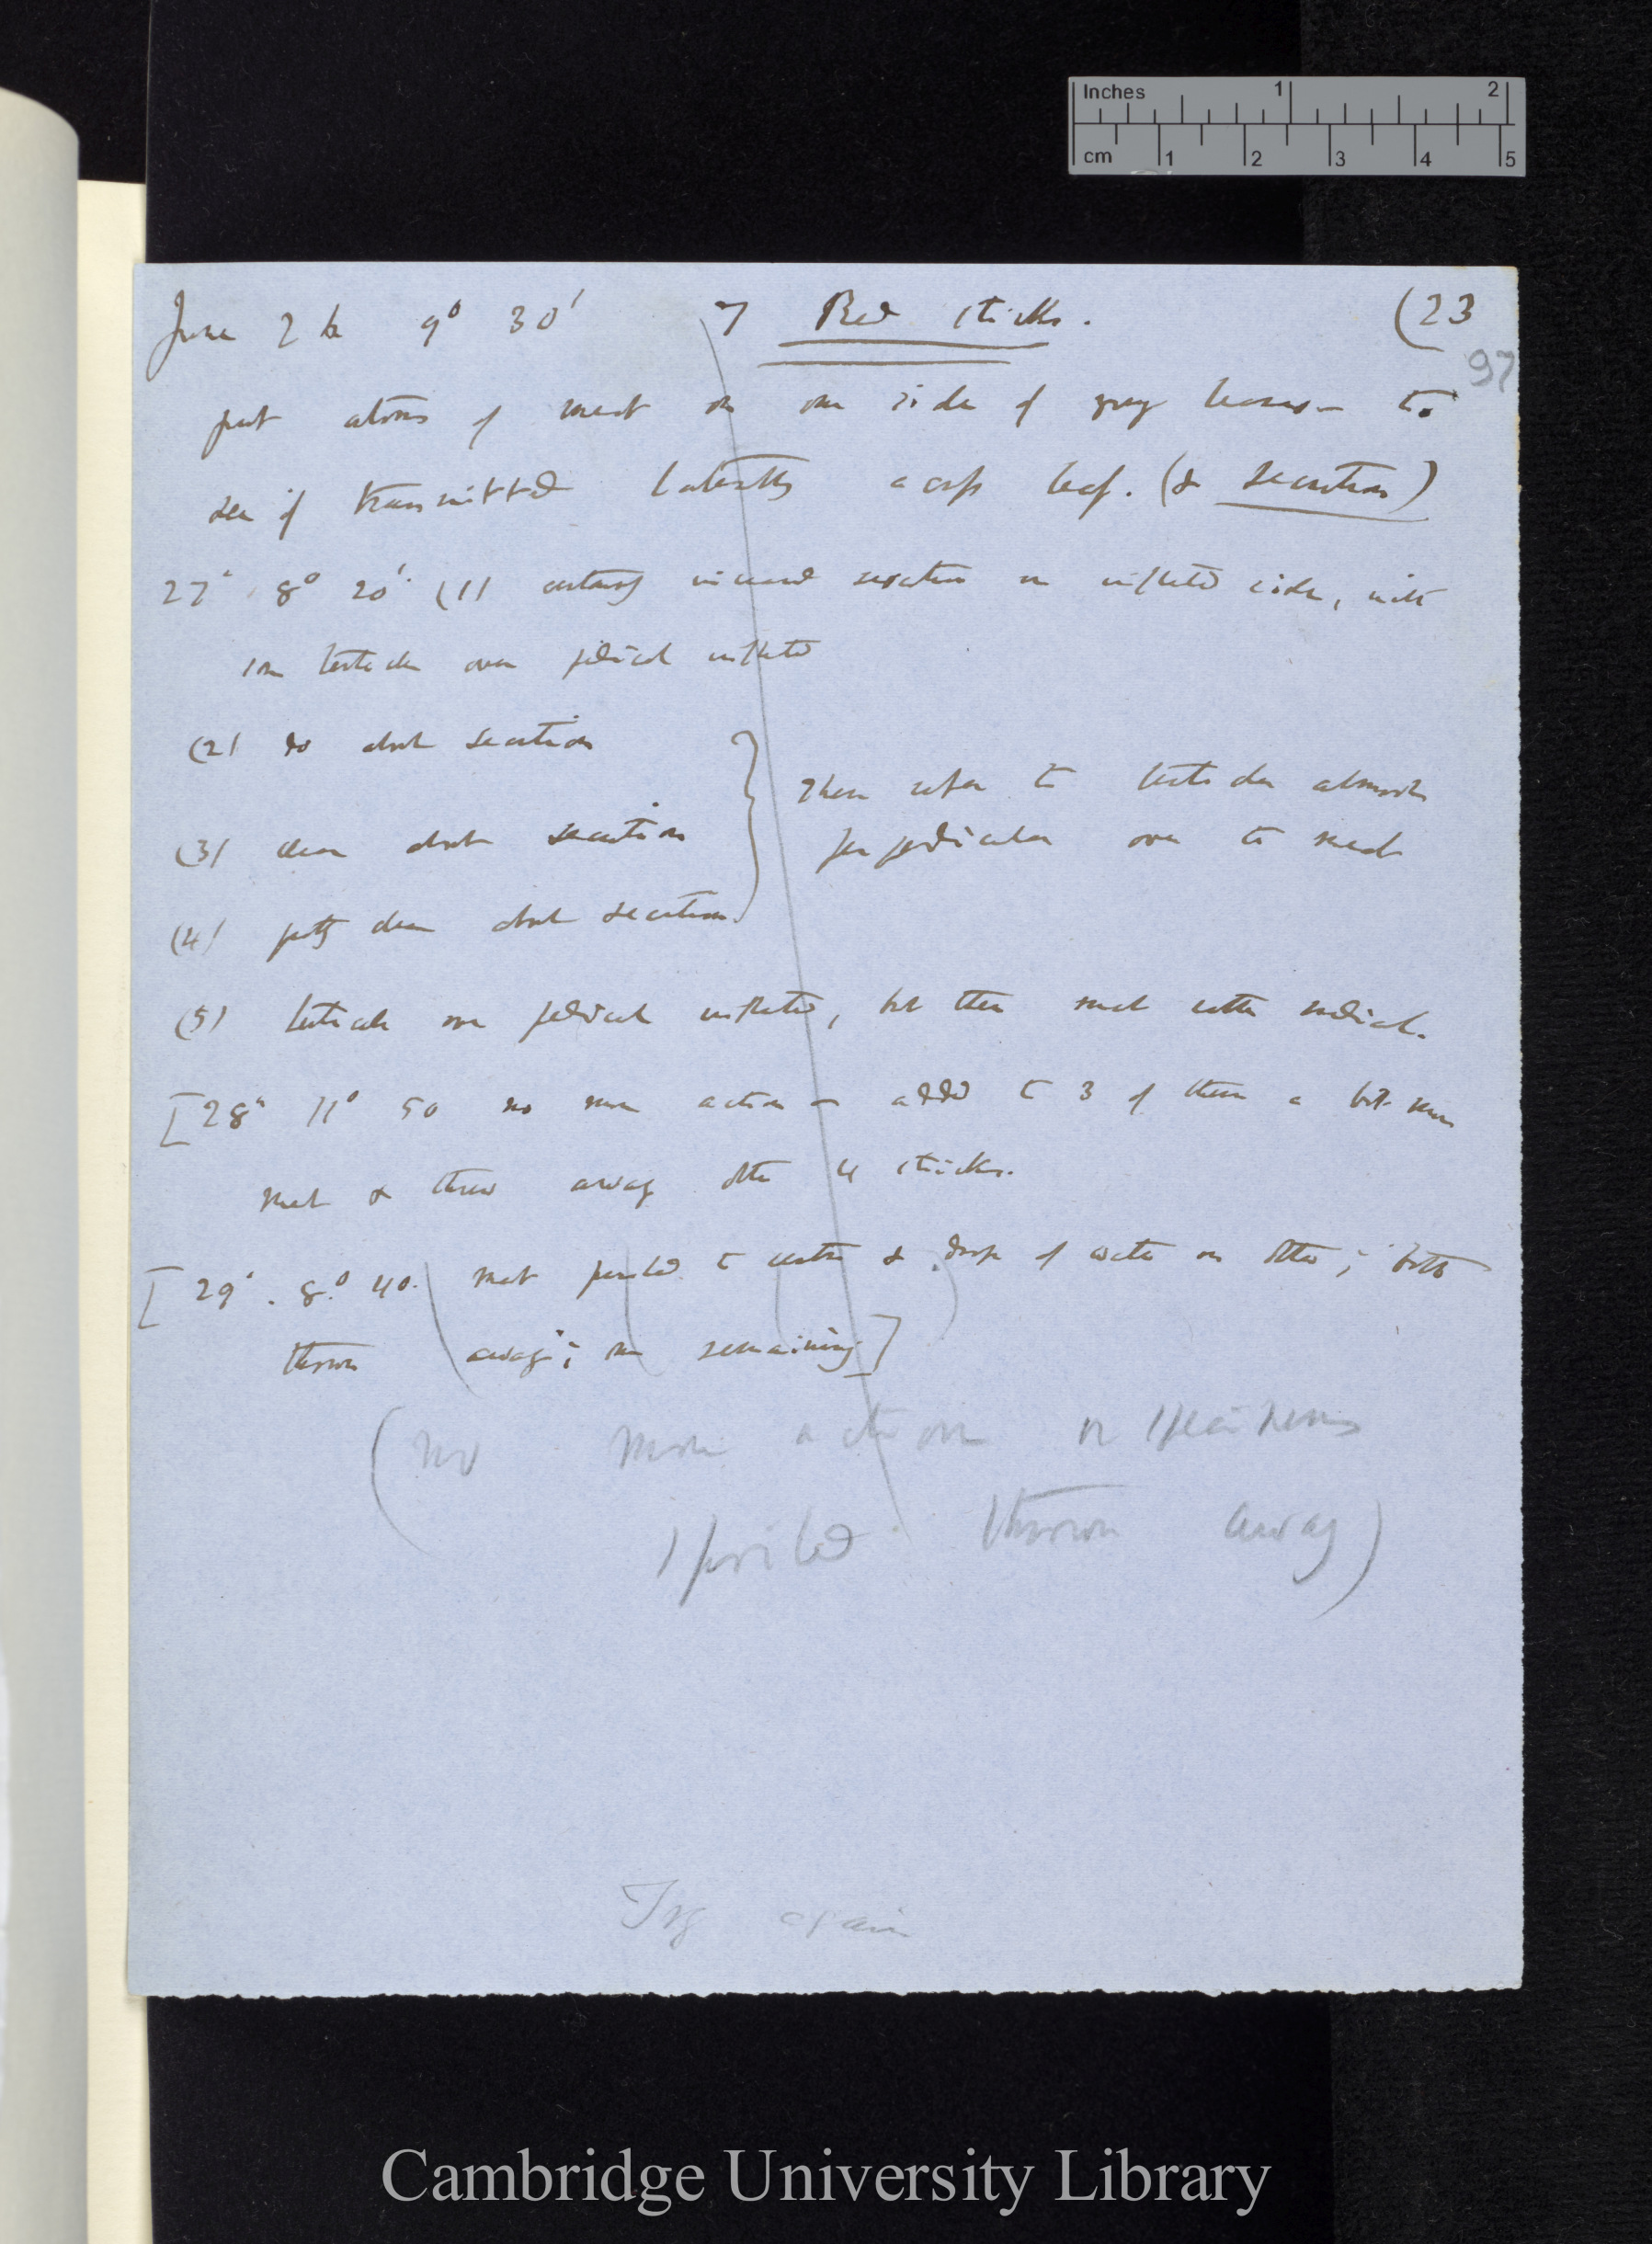 Inches 1 2
cm 1 2 3 4 5
June 26 9° 30' 7 Red sticks. (23
97
put atoms of meat on one side of young leaves — to
see if transmitted laterally across leaf. (& secretion)
27th 8° 20' (1) certainly increased secretion on inflected side, with
tentacles over pedicel inflected
(2) do about secretion
(3) clear about secretion
(4) pretty clear about secretion
These refer to tentacles almost
perpendicular over to meat
(5) tentacles over pedicel inflected, but then meat rather medial.
[28th 11° 50 no more action — added to 3 of them a bit more
meat & threw away other 4 sticks.
[29th. 8° 40. meat to centre & drop of water on other; both
thrown away; one remaining]
(no more action
spoiled thrown away)
Try again
Cambridge University Library